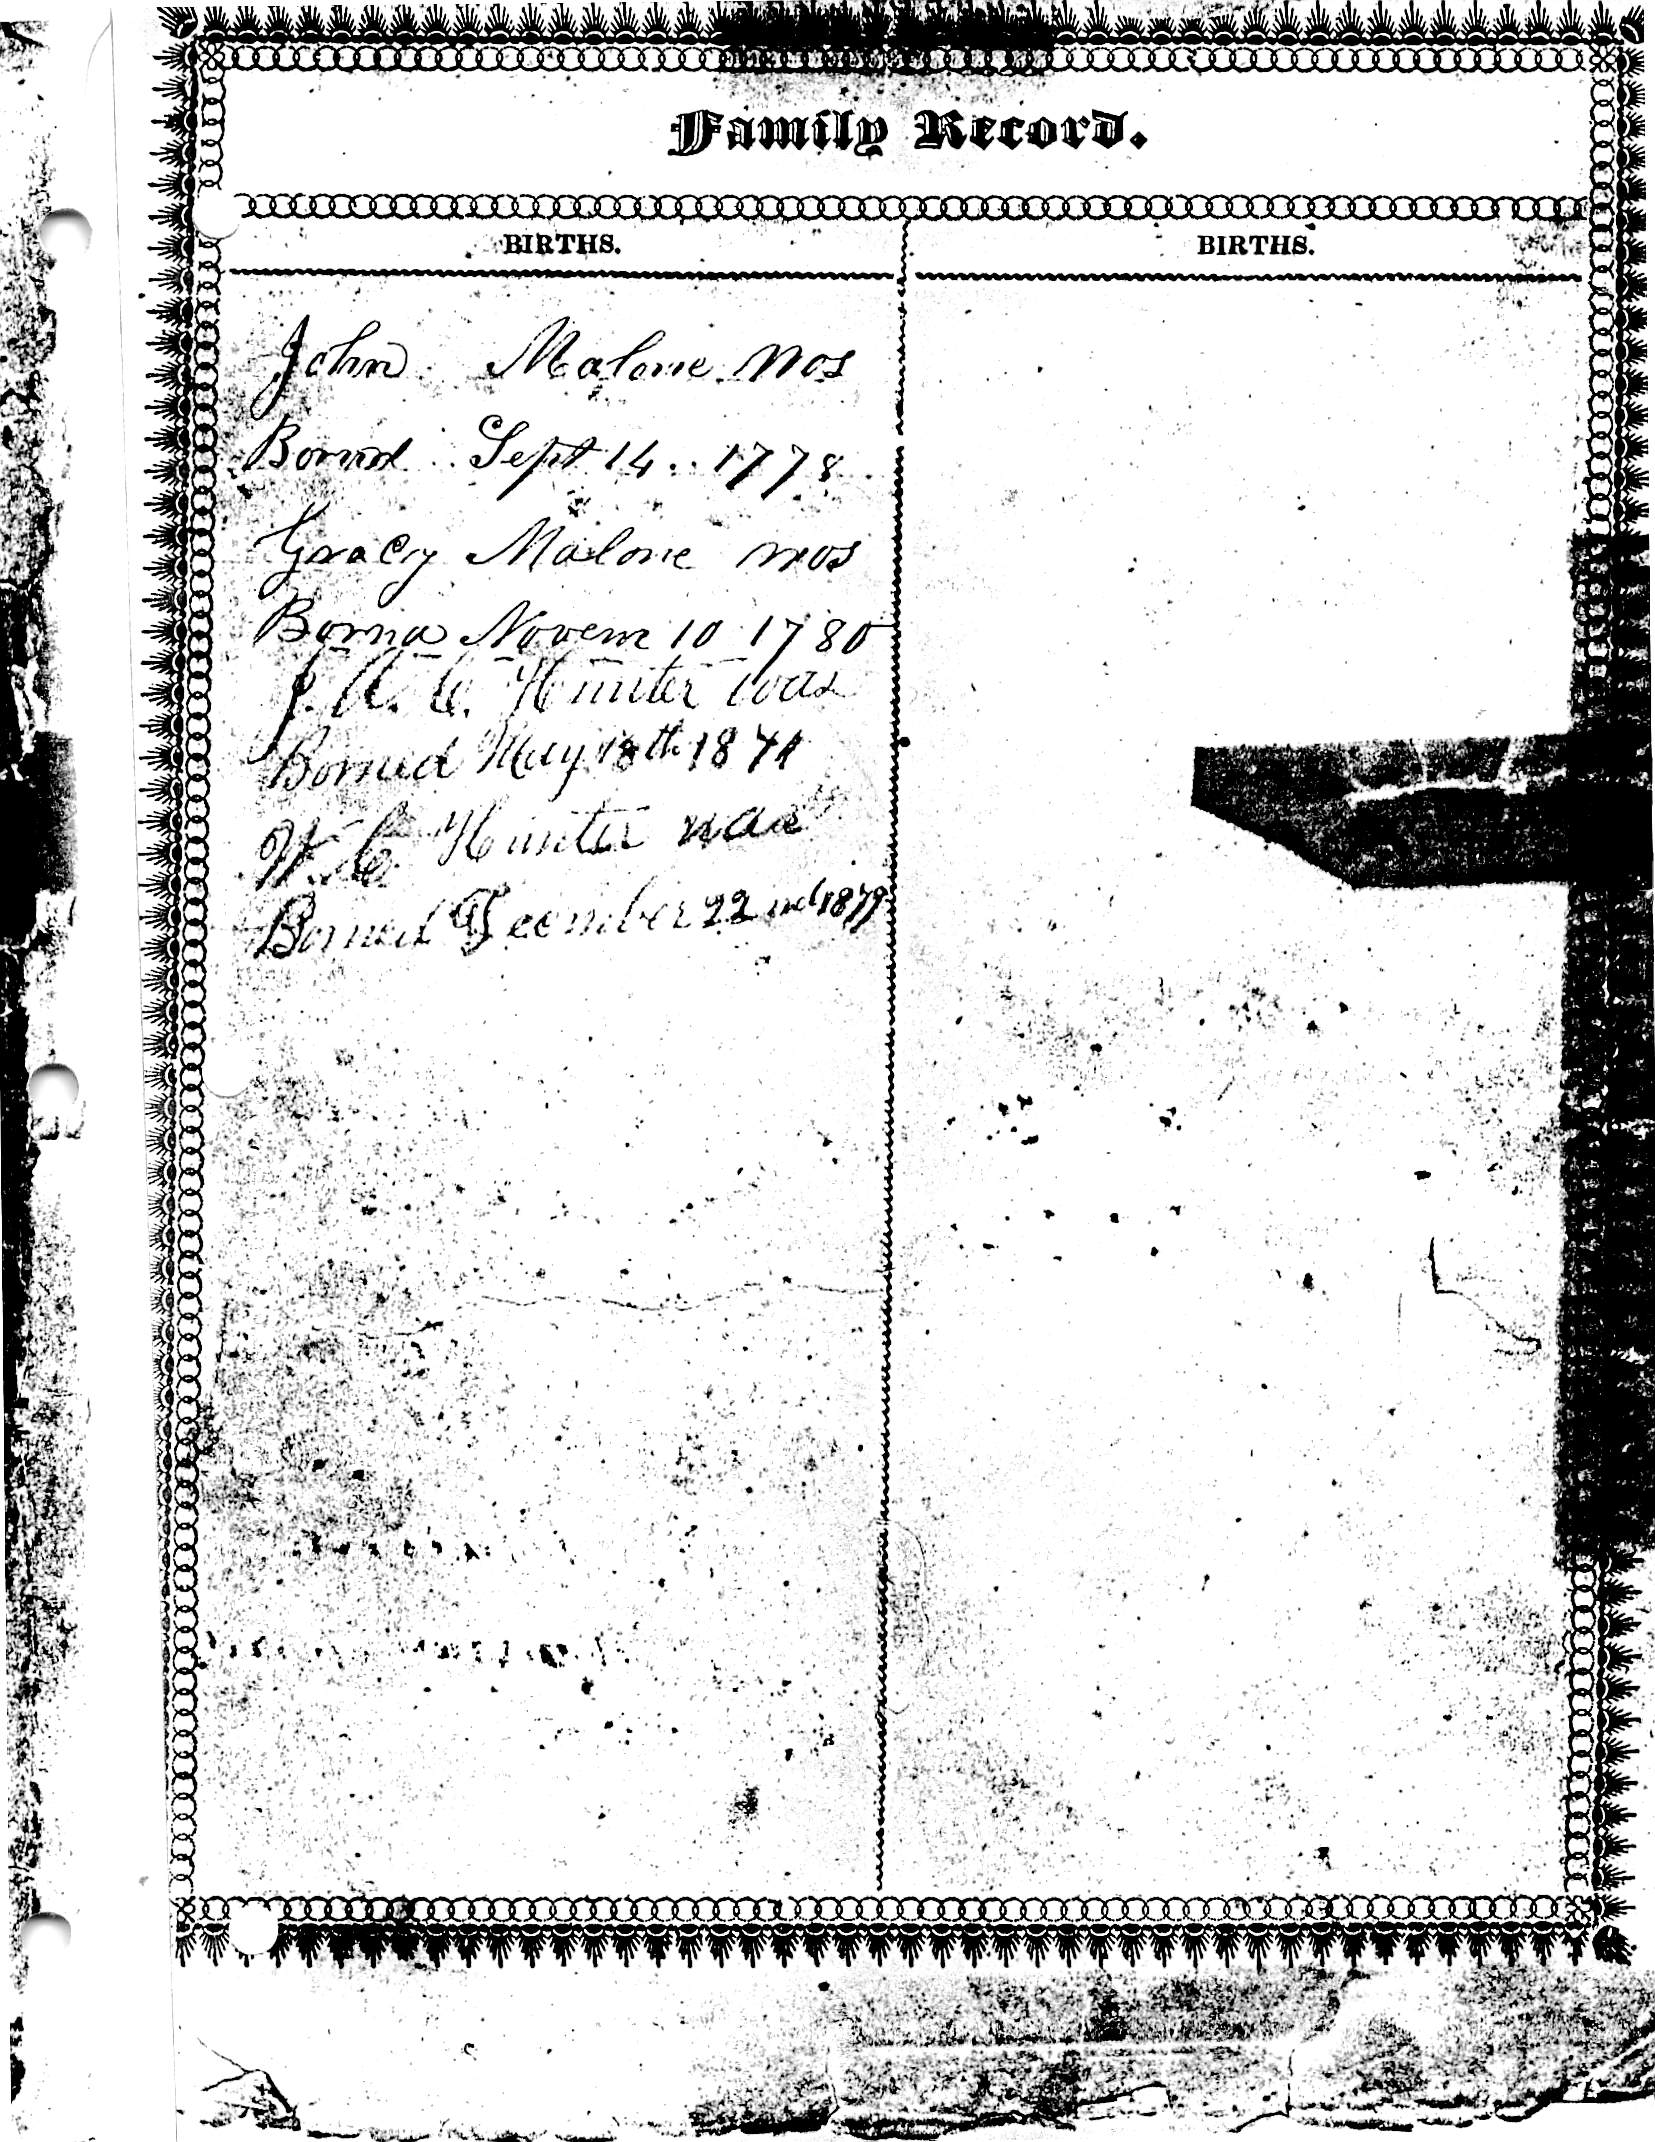 Family Record.
BIRTHS.
BIRTHS.
John Malone wos
Bornd Sept 14 1778
Gracy Malone wos
Bornd Novem 10 1780
J. A. C. Hunter was
Borned May 18th 1871
W. C. Hunter was
Borned December 22nd 1879